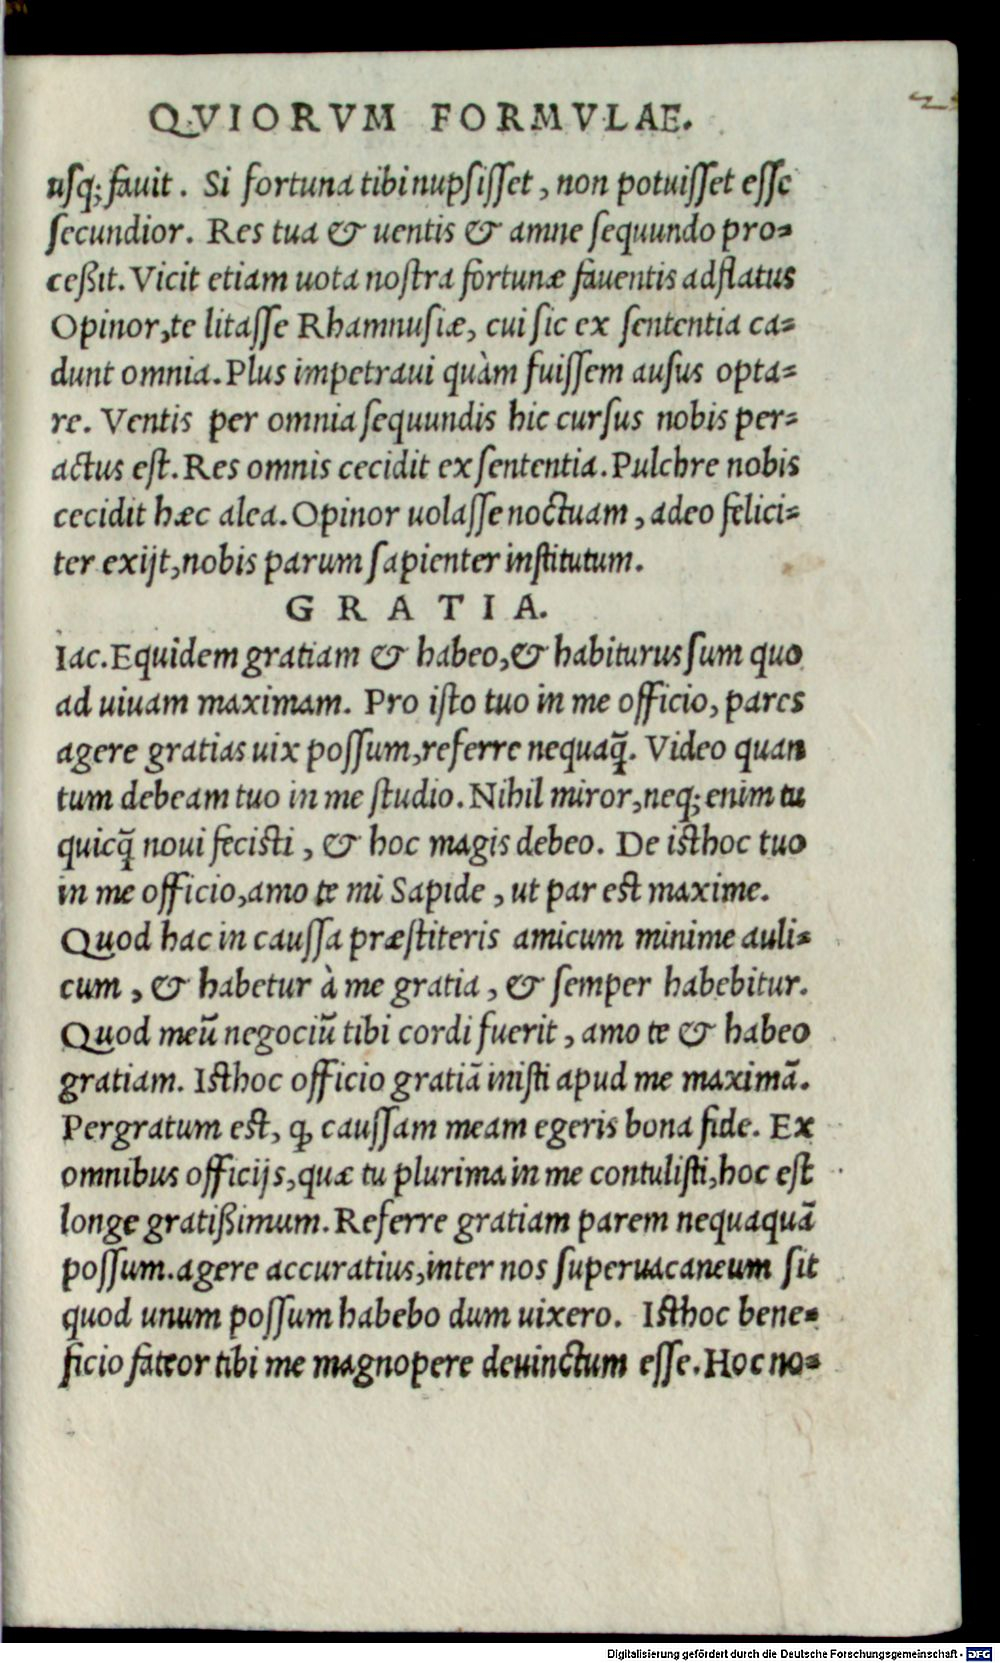 QVIORVM FORMVLAE.
usq; fauit. Si fortuna tibi nupsisset, non potuisset esse
secundior. Res tua & uentis & amne sequundo pro-
ceßit. Vicit etiam uota nostra fortunæ fauentis adflatus
Opinor, te litasse Rhamnusiæ, cui sic ex sententia ca-
dunt omnia. Plus impetraui quàm fuissem ausus opta-
re. Ventis per omnia sequundis hic cursus nobis per-
actus est. Res omnis cecidit ex sententia. Pulchre nobis
cecidit hæc alea. Opinor uolasse noctuam, adeo felici-
ter exijt, nobis parum sapienter institutum.
GRATIA.
Iac. Equidem gratiam & habeo, & habiturus sum quo
ad uiuam maximam. Pro isto tuo in me officio, pares
agere gratias uix possum, referre nequaq̃. Video quan
tum debeam tuo in me studio. Nihil miror, neq; enim tu
quicq̃ noui fecisti, & hoc magis debeo. De isthoc tuo
in me officio, amo te mi Sapide, ut par est maxime.
Quod hac in caussa præstiteris amicum minime auli-
cum, & habetur à me gratia, & semper habebitur.
Quod meũ negociũ tibi cordi fuerit, amo te & habeo
gratiam. Isthoc officio gratiã inisti apud me maximã.
Pergratum est, ꝙ caussam meam egeris bona fide. Ex
omnibus officijs, quæ tu plurima in me contulisti, hoc est
longe gratißimum. Referre gratiam parem nequaquã
possum. agere accuratius, inter nos superuacaneum sit
quod unum possum habebo dum uixero. Isthoc bene-
ficio fateor tibi me magnopere deuinctum esse. Hoc no-
Digitalisierung gefördert durch die Deutsche Forschungsgemeinschaft - DFG